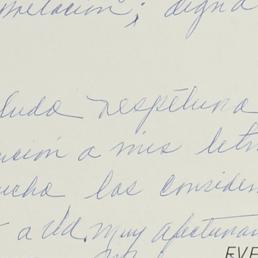 ; digna
luda respetuosa
ción a mis letr
ucho las consider
a Ud. muy afectuosa
EVE